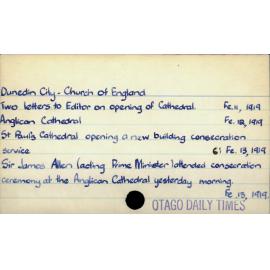 Dunedin City - Church of England
Two letters to Editor on opening of Cathedral. Fe. 11, 1919
Anglican Cathedral Fe. 12, 1919
St Paul's Cathedral opening a new building consecration
service 6: Fe. 13, 1919.
Sir James Allen (acting Prime Minister) attended consecration
ceremony at the Anglican Cathedral yesterday morning.
Fe. 13, 1919.
OTAGO DAILY TIMES